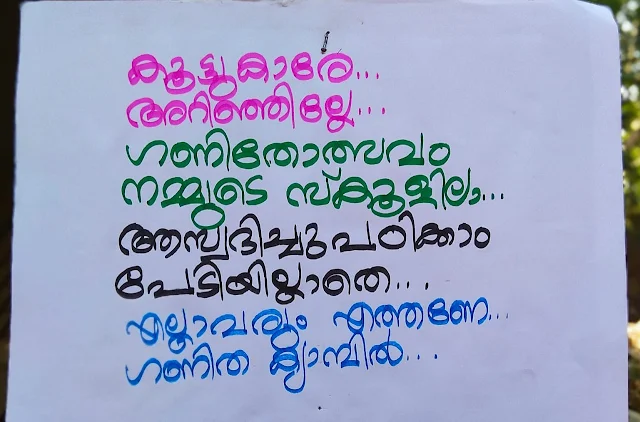 കൂട്ടുകാരേ...
അറിഞ്ഞില്ലേ...
ഗണിതോത്സവം
നമ്മുടെ സ്കൂളിലും...
ആസ്വദിച്ചുപഠിക്കാം
പേടിയില്ലാതെ...
എല്ലാവരും എത്തണേ...
ഗണിത ക്യാമ്പിൽ...